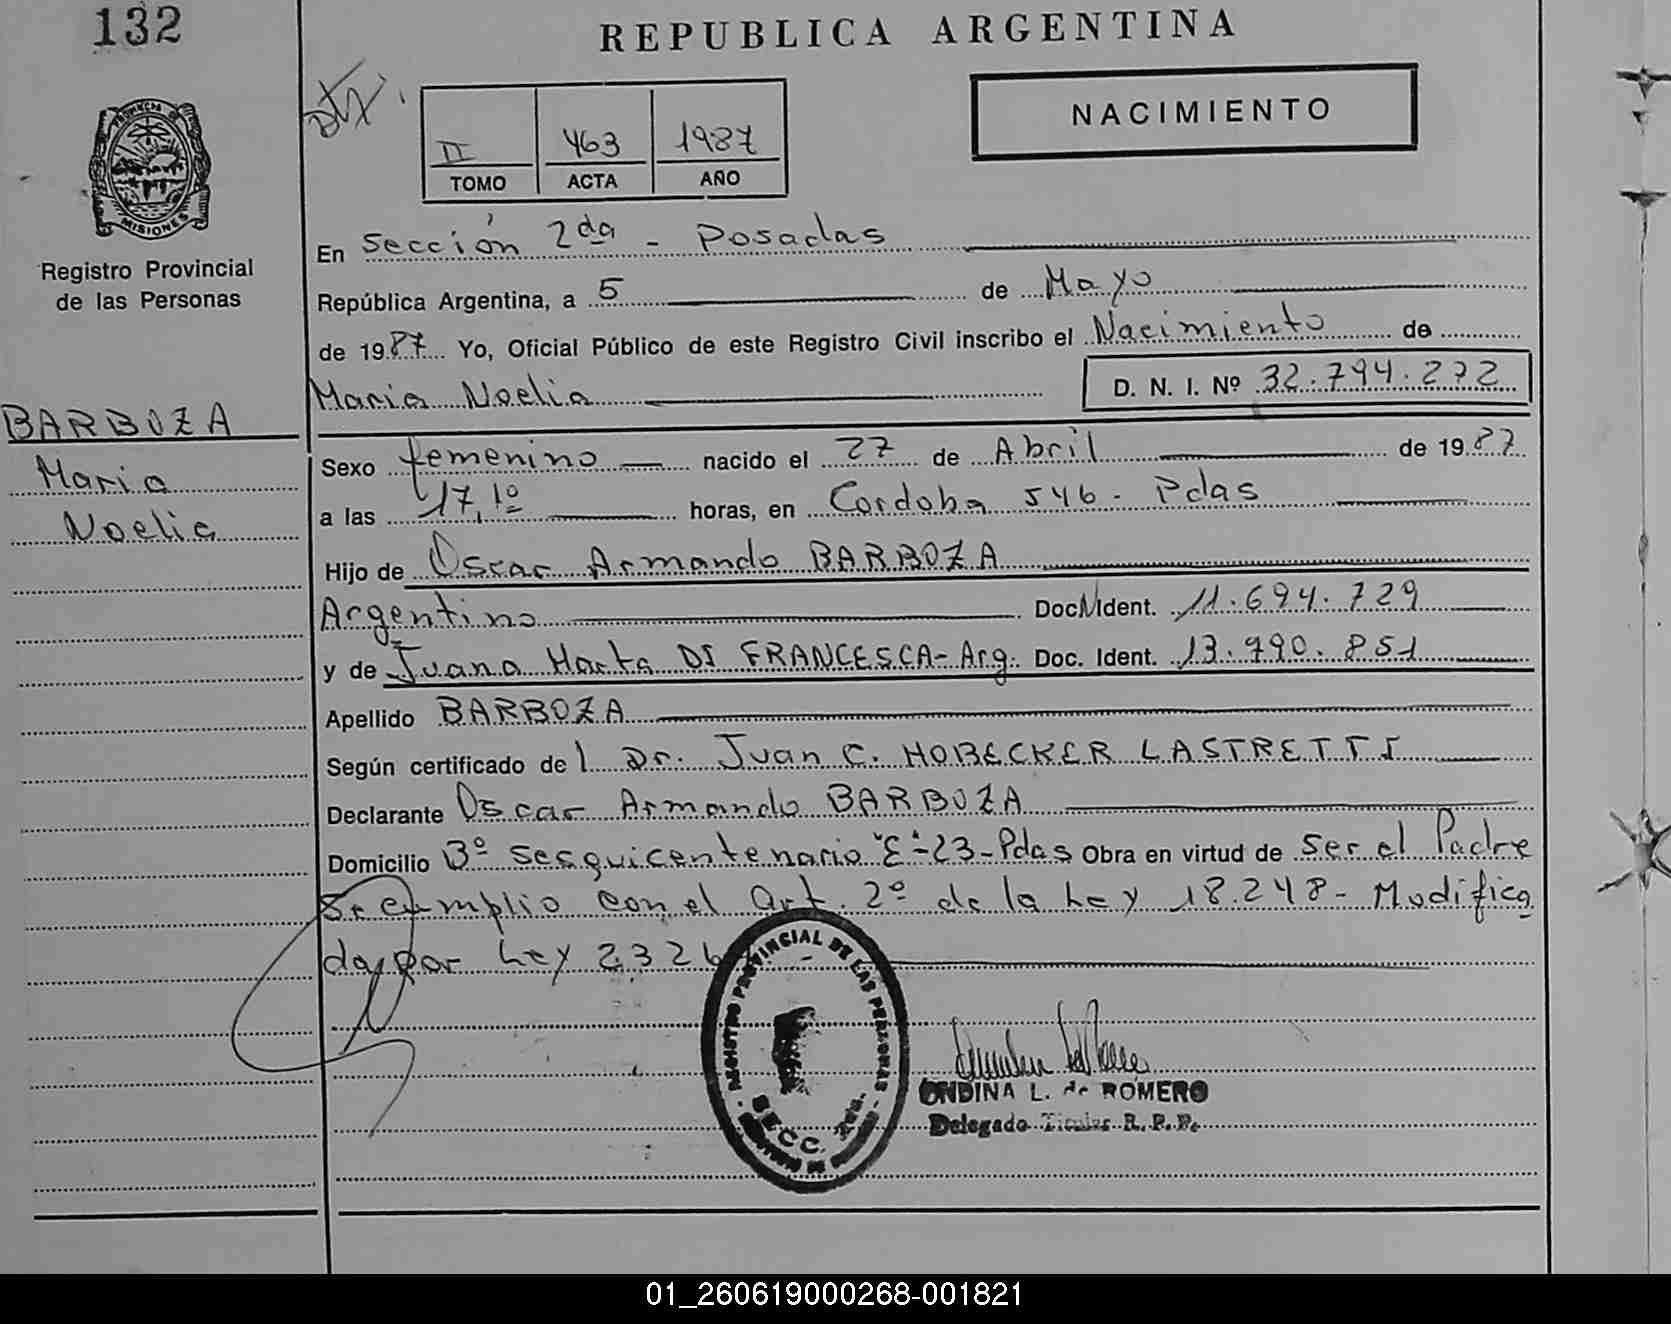 132
REPUBLICA ARGENTINA
NACIMIENTO
II 463 1987
TOMO ACTA AÑO
PROVINCIA DE
MISIONES
Registro Provincial
de las Personas
En Sección 2da - Posadas
República Argentina, a 5 de Mayo
de 1987 Yo, Oficial Público de este Registro Civil inscribo el Nacimiento de
Maria Noelia D. N. I. Nº 32.794.272
BARBOZA
Maria
Noelia
Sexo femenino nacido el 27 de Abril de 1987
a las 17,10 horas, en Cordoba 546 - Pdas
Hijo de Oscar Armando BARBOZA
Argentino Doc. Ident. 11.694.729
y de Juana Marta DI FRANCESCA - Arg. Doc. Ident. 13.790.851
Apellido BARBOZA
Según certificado del Dr. Juan C. HOBECKER LASTRETTI
Declarante Oscar Armando BARBOZA
Domicilio Bº Sesquicentenario "E"-23-Pdas Obra en virtud de Ser el Padre
Se cumplio con el Art. 2º de la Ley 18.248 - Modifica
da por Ley 23.26
REGISTRO PROVINCIAL DE LAS PERSONAS
SECC. 2da.
ONDINA L. de ROMERO
Delegado Titular R. P. P.
01_260619000268-001821